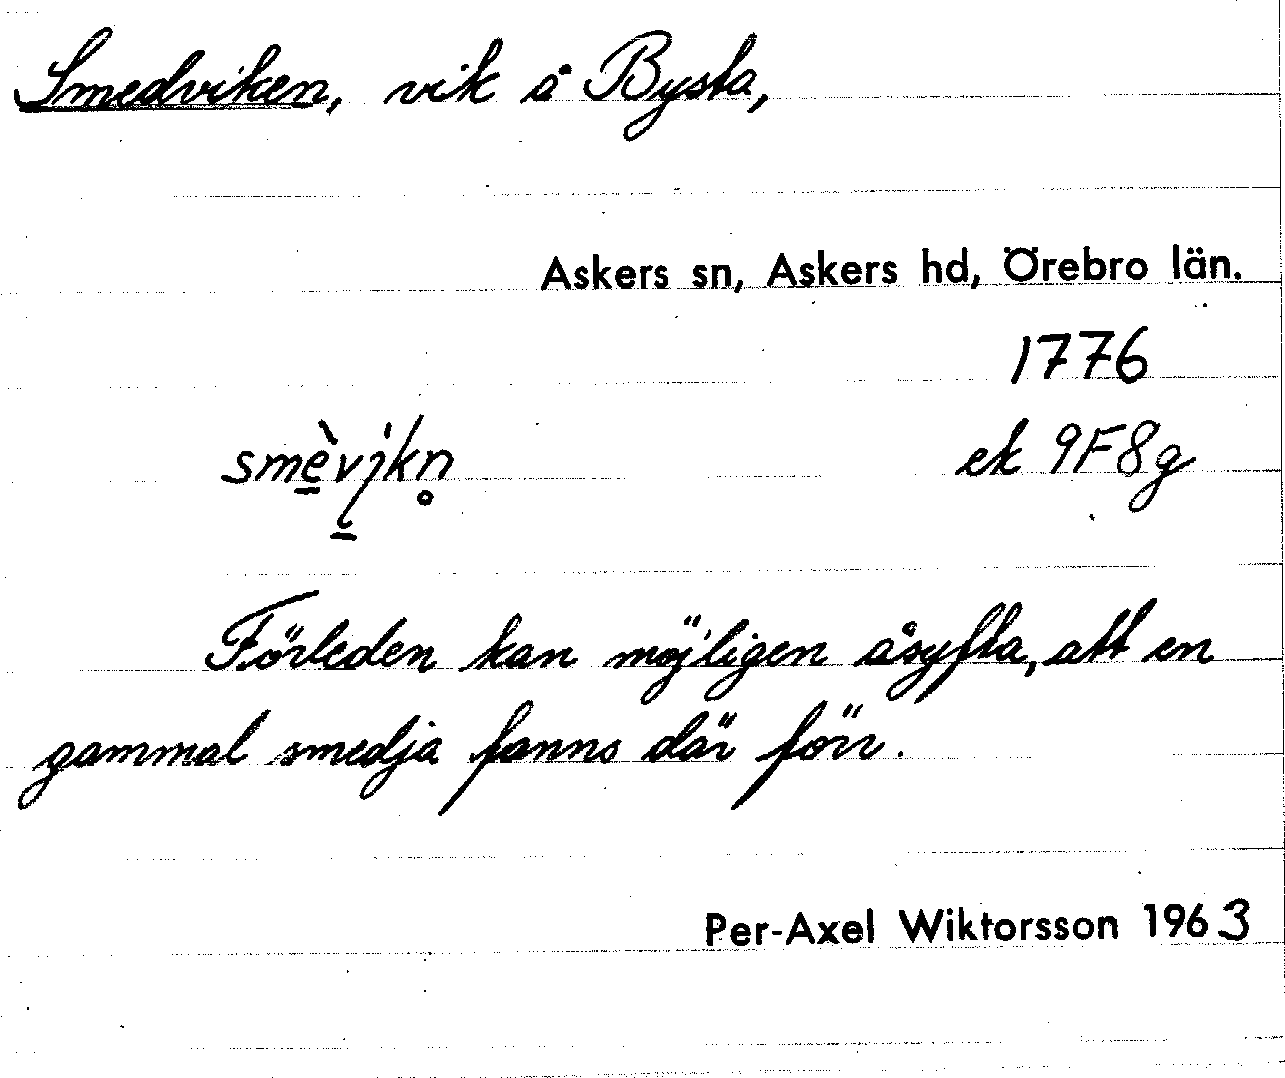 Smedviken, vik å Bysta,
Askers sn, Askers hd, Örebro län.
1776
smè̱vi̱kn̥ ek 9F8g
Förleden kan möjligen åsyfta, att en
gammal smedja fanns där förr.
Per-Axel Wiktorsson 1963